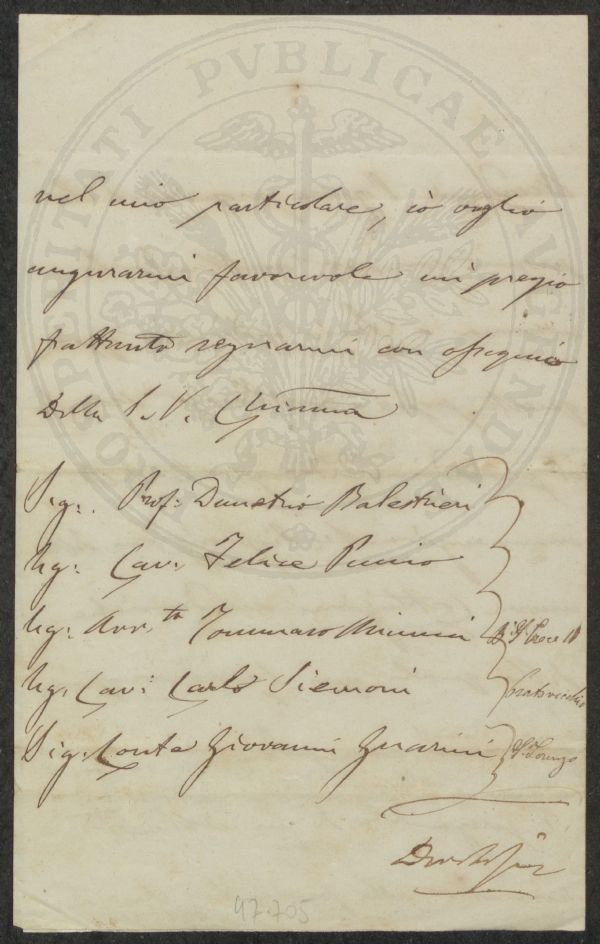 PROSPERITATI PVBLICAE AVGENDAE
nel mio particolare, io voglio
augurarmi favorevole mi pregio
frattanto segnarmi con ossequio
Della S. V. Chiarma
Sig. Prof: Demetrio Balestrieri
Sig: Cav. Felice
Sig: Avv.to Tommaso
Sig. Cav: Carlo Siemoni
Sig: Conte Giovanni Guarini
Pratovecchio
S. Lorenzo
97.705